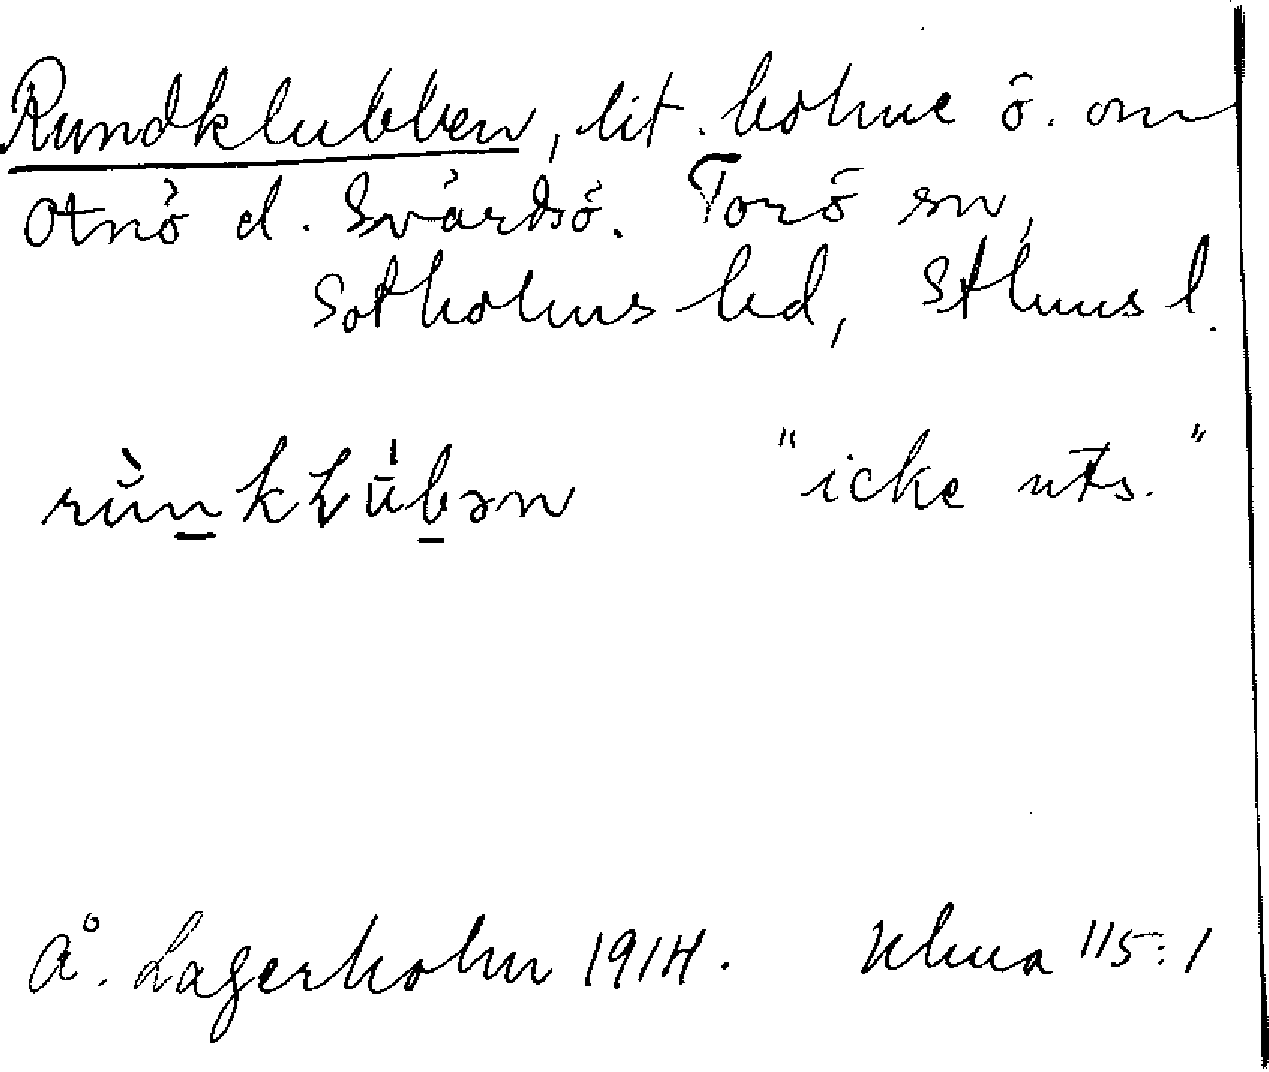 Rundklubben, lit. holme ö. om
Otnö el. Svärdsö. Torö sn,
Sotholms hd, Sthms l.
rùn̲kLúb̲ən "icke uts."
Å. Lagerholm 1914. 115:1